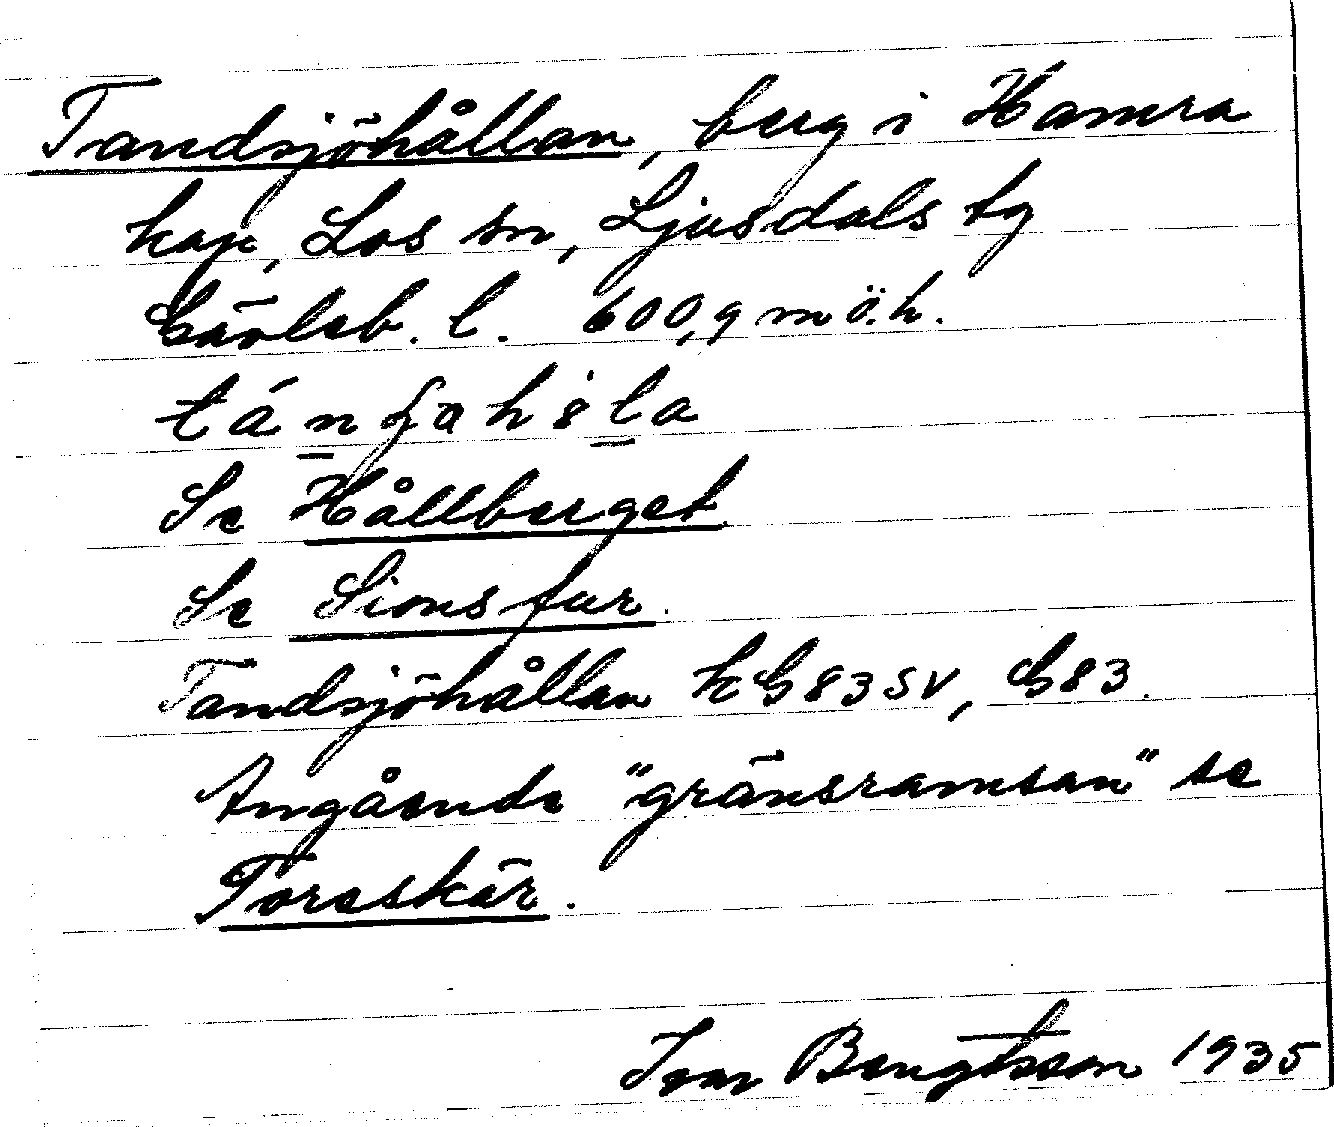 Tandsjöhållan, berg i Hamra
kap, Los sn, Ljusdals tg
Gävleb. l. 600,9 m ö.h.
Se Hållberget
Se Sionstur.
Tandsjöhållan kG83SV, G83.
Angående "gränsramsan" se
Toreskär.
Ivar Bengtsson 1935